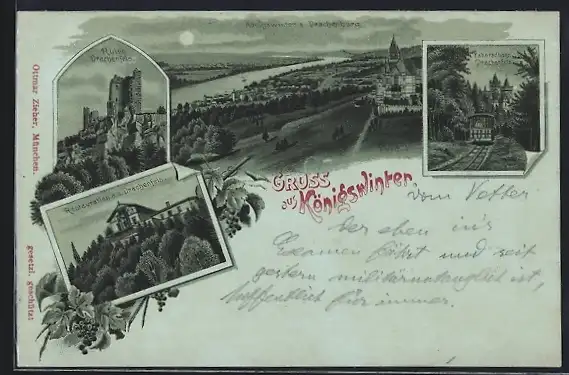 Königswinter u. Drachenburg.
Ruine
Drachenfels.
Zahnradbahn
Drachenfels.
Restauration a. d. Drachenfels.
Gruss
aus Königswinter
vom Vetter
der eben in's
Examen fährt und seit
gestern militäruntauglich ist,
hoffentlich für immer.
Ottmar Zieher, München.
gesetzl. geschützt